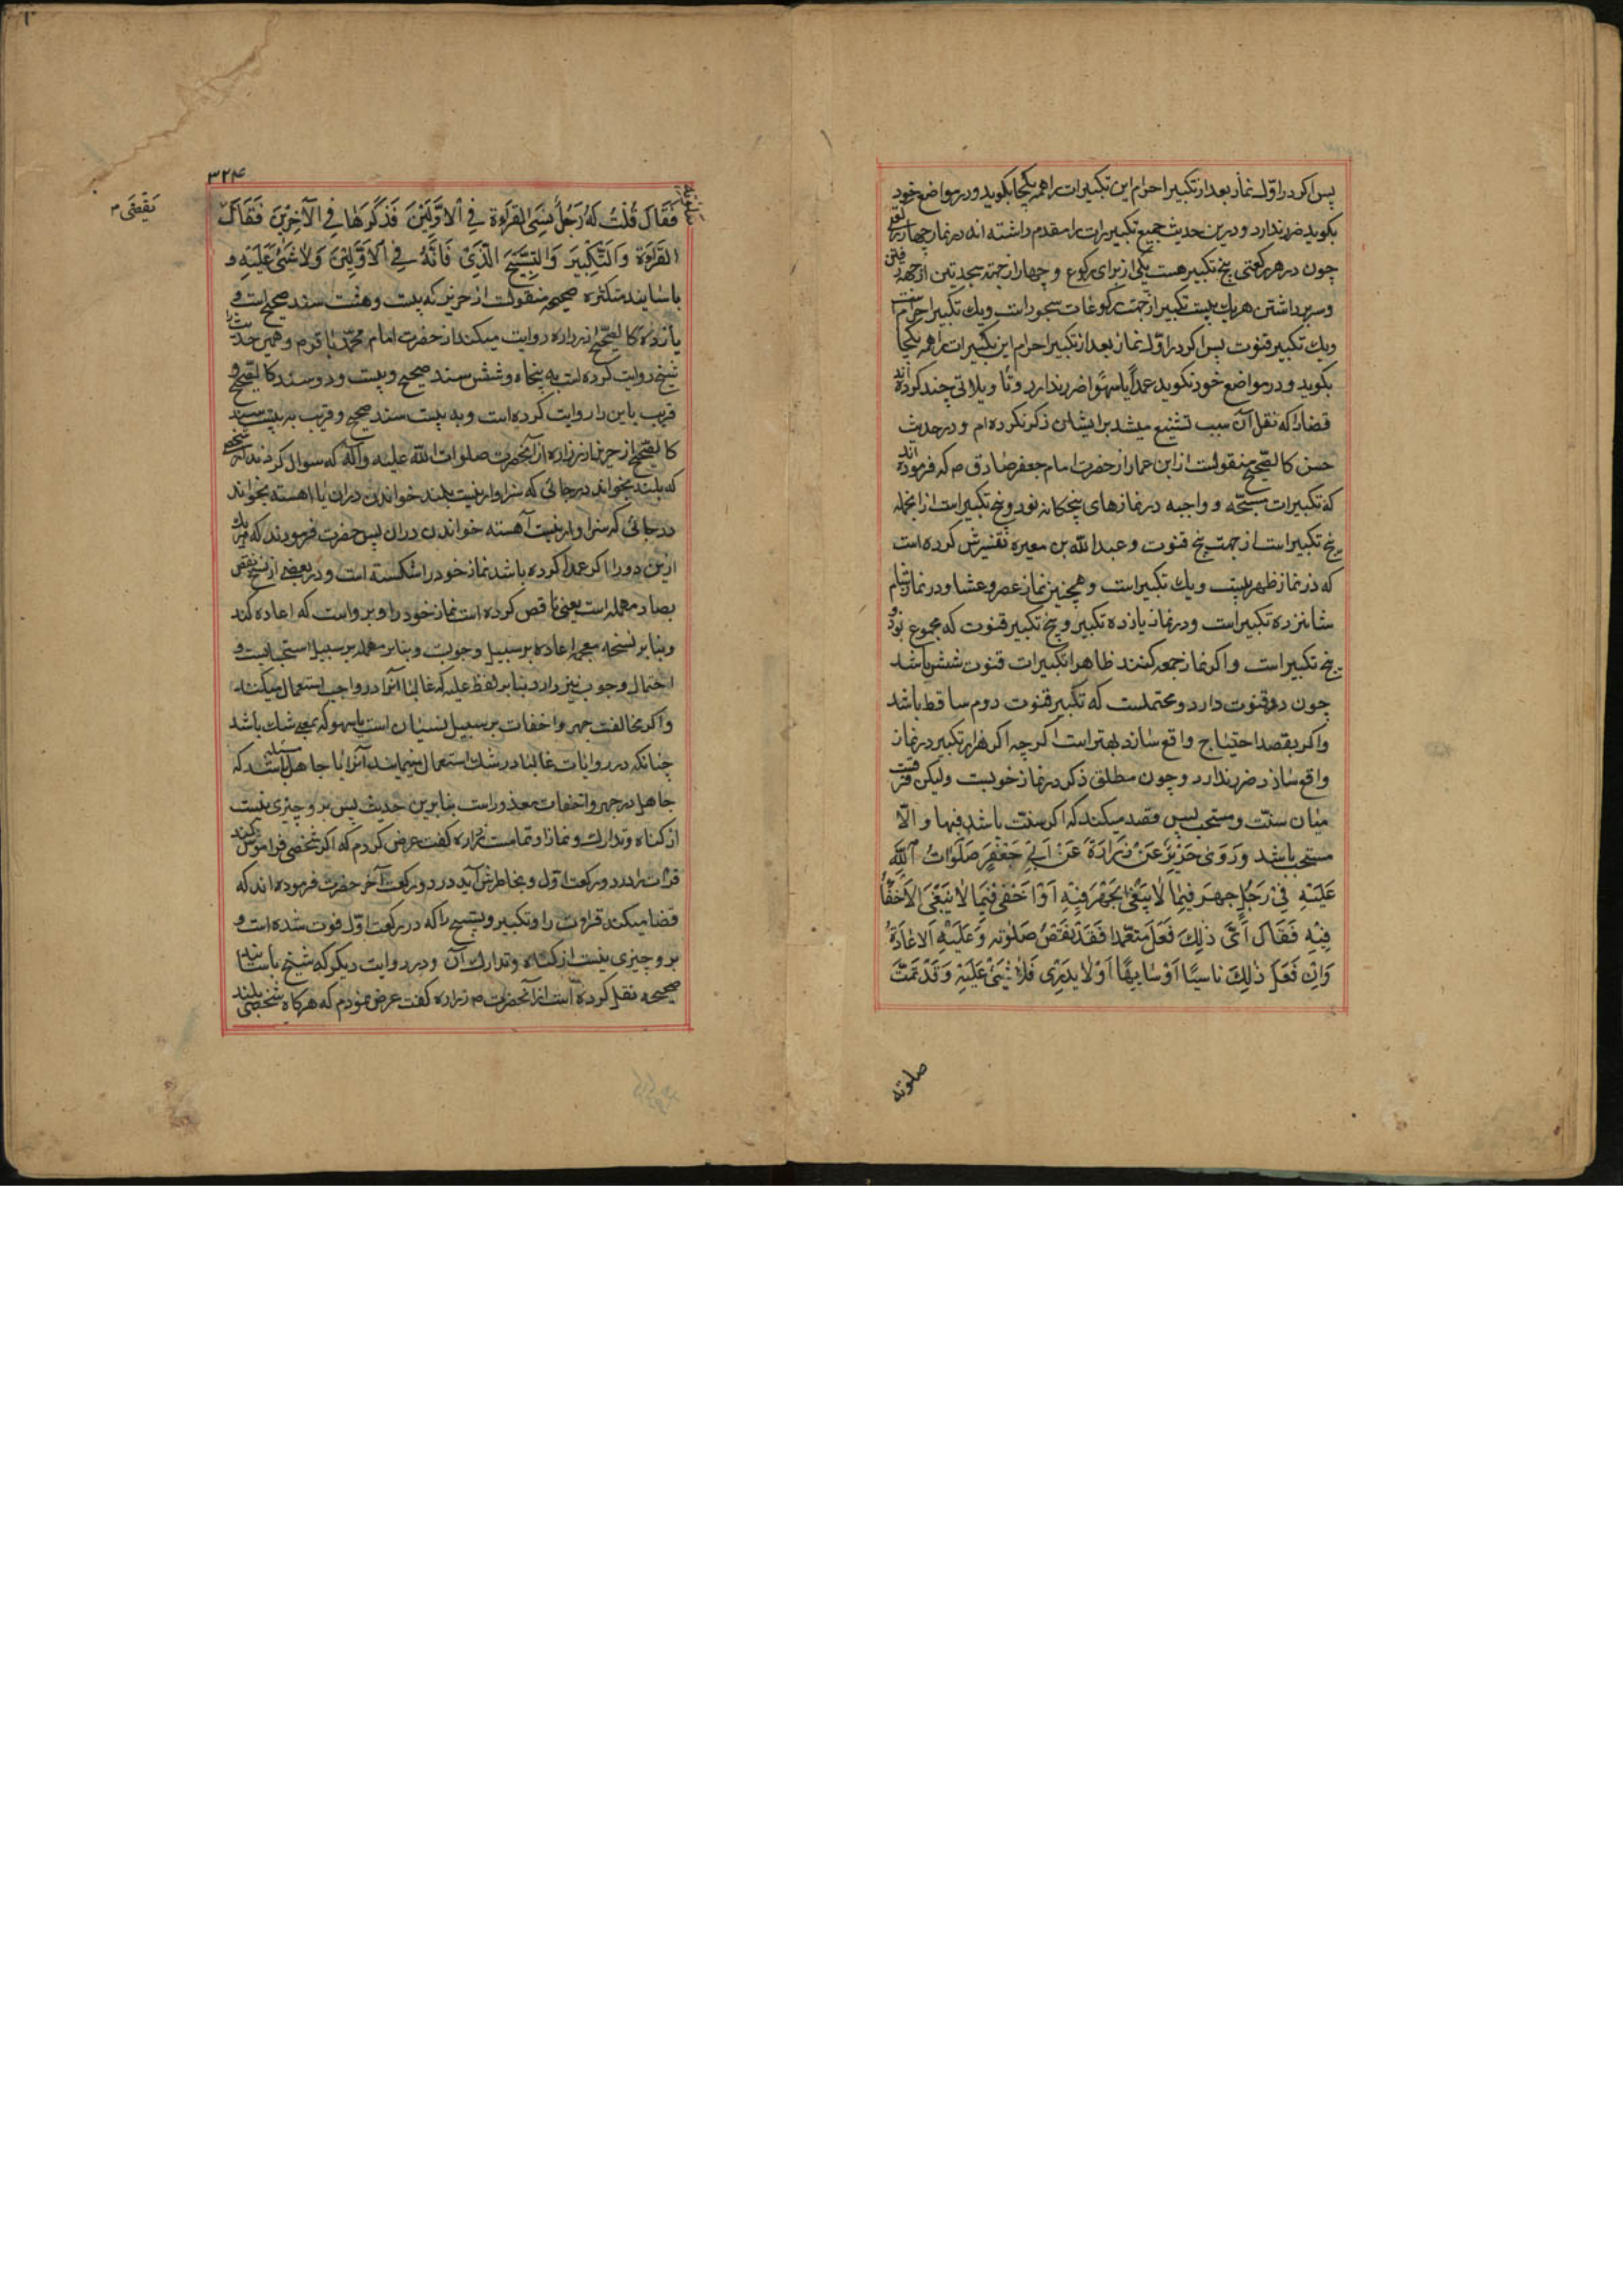 پس اکر در اوّل نماز بعد از تکبیر احرام این تکبیرات را همه یکجا بکوید و در مواضع خود
بکوید ضرر ندارد و درین حدیث جمیع تکبیرات را مقدم داشته اند در نماز چهار رکعتی
چون در هر رکعتی پنج تکبیر هست یکی از برای رکوع و چهار از جهة سجدتین از جهة رفتن
و سر برداشتن هر یک بیست تکبیر از جهت رکوعات و سجود است و یک تکبیر احرام است
و یک تکبیر قنوت پس اکر در اوّل نماز بعد از تکبیر احرام این تکبیرات را همه یکجا
بکوید و در مواضع خود نکوید عمداً یا سهواً ضرر ندارد و تأویلاتی چند کرده اند
فضلا که نقل آن سبب تشنیع میشد بر ایشان ذکر نکرده ام و در حدیث
حسن کالصّحیح منقولست از ابن عمار از حضرت امام جعفر صادق م که فرموده اند
که تکبیرات مستحبّه و واجبه در نمازهای پنجکانه نود و پنج تکبیر است از انجمله
پنج تکبیر است از جهت پنج قنوت و عبد الله بن مغیره تفسیرش کرده است
که در نماز ظهر بیست و یک تکبیر است و همچنین نماز عصر و عشا و در نماز شام
شانزده تکبیر است و در نماز یازده تکبیر و پنج تکبیر قنوت که مجموع نود و
پنج تکبیر است و اکر نماز جمعه کنند ظاهرا تکبیرات قنوت شش باشد
چون دو قنوت دارد و محتملست که تکبیر قنوت دوم ساقط باشد
و اکر بقصد احتیاج واقع سازد بهتر است اکرچه اکر هزار تکبیر در نماز
واقع سازد ضرر ندارد و چون مطلق ذکر در نماز خوبست ولیکن فرقست
میان سنّت و مستحب پس قصد میکند که اکر سنّت باشد فبها و الّا
مستحب باشد وَرَوَى حَرِيْزٌ عَنْ زُرَارَةَ عَنْ اَبِيْ جَعْفَرٍ صَلَوَاتُ اللّٰهِ
عَلَيْهِ فِيْ رَجُلٍ جَهَرَ فِيمَا لَا يَنْبَغِي الجَهْرُ فِيْهِ اَوْ اَخْفَى فِيْمَا لَا يَنْبَغِي الاِخْفَاءُ
فِيْهِ فَقَالَ اَيَّ ذٰلِكَ فَعَلَ مُتَعَمِّدًا فَقَدْ نَقَضَ صَلٰوتَهُ وَعَلَيْهِ الاِعَادَةُ
وَاِنْ فَعَلَ ذٰلِكَ نَاسِيًا اَوْ سَاهِيًا اَوْ لَا يَدْرِى فَلَا شَيْئَ عَلَيْهِ وَقَدْ تَمَّتْ
صلوته
۳۲۴
صَلوتُهُ
فَقَالَ قُلْتُ لَهُ رَجُلٌ نَسِيَ القِرَاءَةَ فِي الاَوَّلَيْنَ فَذَكَرَهَا فِي الآخِرَيْنَ فَقَالَ
يَقْضِي م
القِرَاءَةَ وَالتَّكْبِيرَ وَالتَّسْبِيحَ الَّذِيْ فَاتَهُ فِي الاَوَّلَيْنَ وَلَا شَيْئَ عَلَيْهِ و
باسانید متکثره صحیحه منقولست از حریز که بیست و هفت سند صحیح است و
یازده کالصّحیح از زراره روایت میکند از حضرت امام محمّد باقر م و همین حدیث را
شیخ روایت کرده است به پنجاه و شش سند صحیح و بیست و دو سند کالصّحیح و
قریب باین را روایت کرده است و به بیست سند صحیح و قریب به بیست سند
کالصّحیح از حریز از زراره از آنحضرت صلوات اللّه علیه و آله که سوال کردند از شخصی
که بلند بخواند در جائی که سزاوار نیست بلند خواندن دران یا اهسته بخواند
در جائی که سزاوار نیست آهسته خواندن دران پس حضرت فرمودند که هر یک
ازین دو را اکر عمدا کرده باشد نماز خود را شکسته است و در بعضی از نسخ نقص
بصاد مهمله است یعنی ناقص کرده است نماز خود را و برو است که اعاده کند
و بنا بر نسخه معجمه اعاده بر سبیل وجوبست و بنا بر مهمله بر سبیل استحبابست و
احتمال وجوب نیز دارد بنا بر لفظ علیه که غالبا انرا در واجب استعمال میکنند
و اکر مخالفت جهر و اخفات بر سبیل نسیان است یا سهو که بمعنی شک باشد
چنانکه در روایات غالبا در شک استعمال مینمایند آنرا یا جاهل مسئله است که
جاهل در جهر و اخفات معذور است بنا برین حدیث پس برو چیزی نیست
از کناه و تدارک و نماز او تمامست زراره کفت عرض کردم که اکر شخصی فراموش کند
قراءت را در دو رکعت اوّل و بخاطرش آید در دو رکعت آخر حضرت فرموده اند که
قضا میکند قراءت را و تکبیر و تسبیح را که در رکعت اوّل فوت شده است و
برو چیزی نیست از کناه و تدارک آن و در روایت دیکر که شیخ باسانید
صحیحه نقل کرده است از آنحضرت م زراره کفت عرض نمودم که هرکاه شخصی بلند